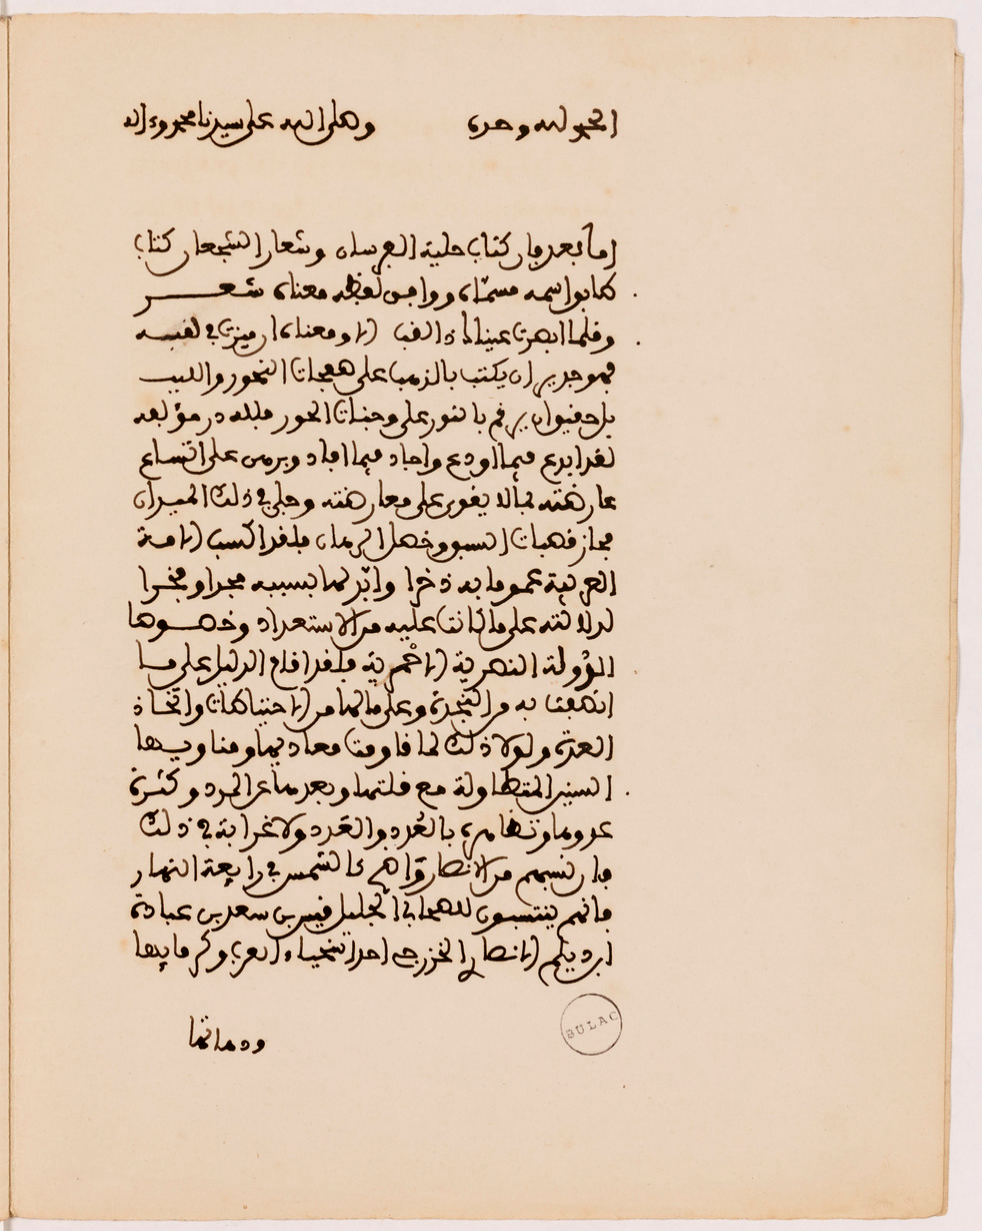 الحمد لله وحده وصلى الله على سيدنا محمد وءاله
اما بعد فإن كتاب حلية الفرسان وشعار الشجعان كتاب
طابق اسمه مسماه ووافق لفظه معناه شعـــر
وقلما ابصرت عيناك ذا لقب الا ومعناه ان ميزت في لقبه
فهو جدير ان يكتب بالذهب على صفحات النحور واللبب
بل حقيق ان يرقم بالنور على وجنات الحور فلله در مؤلفه
لقد ابدع فيما اودع واجاد فيما افاد وبرهن على اتساع
عارضته بما لا يقوى على معارضته وحلى في ذلك الميدان
مجاز قصبات السبق وخصل الرهان فلقد اكسب الامة
العربية عموما به ذخرا وابد لها بسببه مجدا وفخرا
لدلالته على ما كانت عليه من الاستعداد وخصوصا
الدولة النصرية الاحمرية فلقد اقام الدليل على ما
اتصفت به من النجدة وعلى ما لها من الاحتياطات واتخاذ
العدة ولولا ذلك لما قاومت معاديها ومناويها
السنين المتطاولة مع قلتها وبعدها عن المدد وكثرة
عدوها وتظاهره بالعُدد والعَدد ولا غرابة في ذلك
فإن نسبهم من الانصار واضح كالشمس في رابعة النهار
فانهم ينتسبون للصحابي الجليل قيس بن سعد بن عبادة
ابن دليم الانصاري الخزرجي احد اسخياء العرب وكرمايها
ودهاتها
BULAC